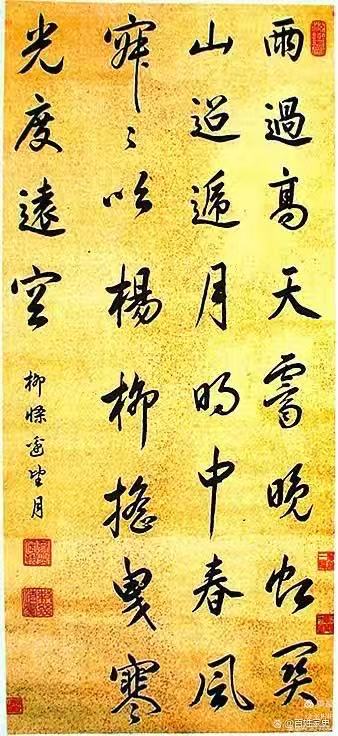 雨過高天霽晚虹關
山迢遞月明中春風
寂〻吹楊柳搖曳寒
光度遠空
柳條邊望月
@百姓家史